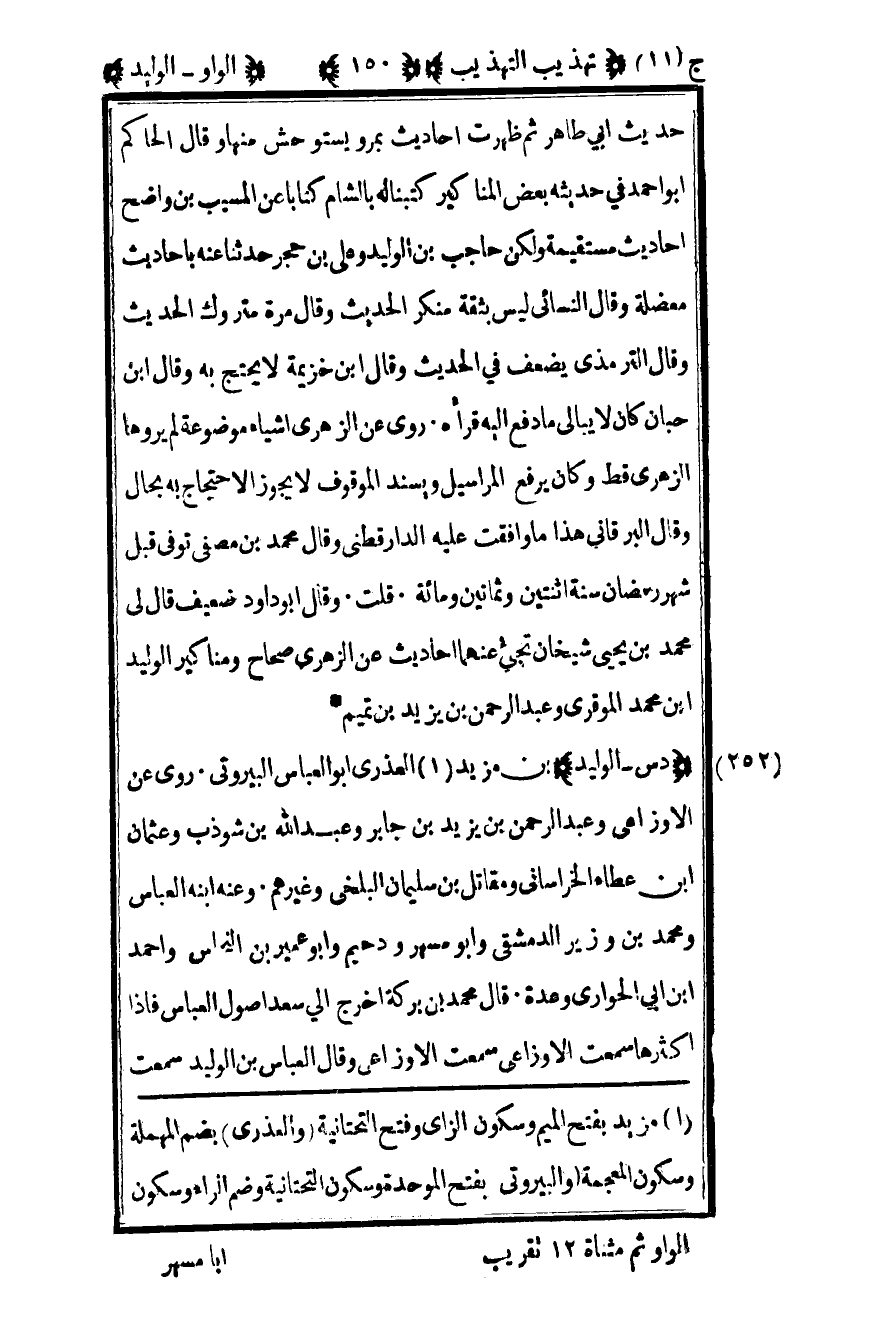 ج (١١) ﴿ تهذيب التهذيب ﴾ ﴿ ١٥٠ ﴾ ﴿ الواو - الوليد ﴾
حديث ابي طاهر ثم ظهرت احاديث بمرو يستوحش منها وقال الحاكم
ابواحمد في حديثه بعض المناكير كتبناله بالشام كتابا عن المسيب بن واضح
احاديث مستقيمة ولكن حاجب بن الوليد وعلى بن حجر حدثنا عنه باحاديث
معضلة وقال النسائى ليس بثقة منكر الحديث وقال مرة متروك الحديث
وقال الترمذى يضعف في الحديث وقال ابن خزيمة لا يحتج به وقال ابن
حبان كان لا يبالى مادفع اليه قرأه · روى عن الزهرى اشياء موضوعة لم يروها
الزهرى قط وكان يرفع المراسيل ويسند الموقوف لا يجوز الاحتجاج به بحال
وقال البرقاني هذا ما وافقت عليه الدارقطنى وقال محمد بن مصفى توفى قبل
شهر رمضان سنة اثنتين وثمانين ومائة · قلت · وقال ابوداود ضعيف قال لى
محمد بن يحيى شيخان تجئ عنهما احاديث عن الزهرى صحاح ومناكير الوليد
ابن محمد الموقرى وعبدالرحمن بن يزيد بن تميم *
(٢٥٢) ﴿ دس - الوليد ﴾ بن مزيد (١) العذرى ابوالعباس البيروتى · روى عن
الاوزاعى وعبدالرحمن بن يزيد بن جابر وعبدالله بن شوذب وعثمان
ابن عطاء الخراسانى ومقاتل بن سليمان البلخى وغيرهم · وعنه ابنه العباس
ومحمد بن وزير الدمشقى وابو مسهر ودحيم وابو عمير بن النحاس واحمد
ابن ابي الحوارى وعدة · قال محمد بن بركة اخرج الي سعد اصول العباس فاذا
اكثرها سمعت الاوزاعى سمعت الاوزاعى وقال العباس بن الوليد سمعت
(١) مزيد بفتح الميم وسكون الزاى وفتح التحتانية (والعذرى) بضم المهملة
وسكون المعجمة (والبيروتى بفتح الموحدة وسكون التحتانية وضم الراء وسكون
الواو ثم مثناة ١٢ تقريب
ابا مسهر